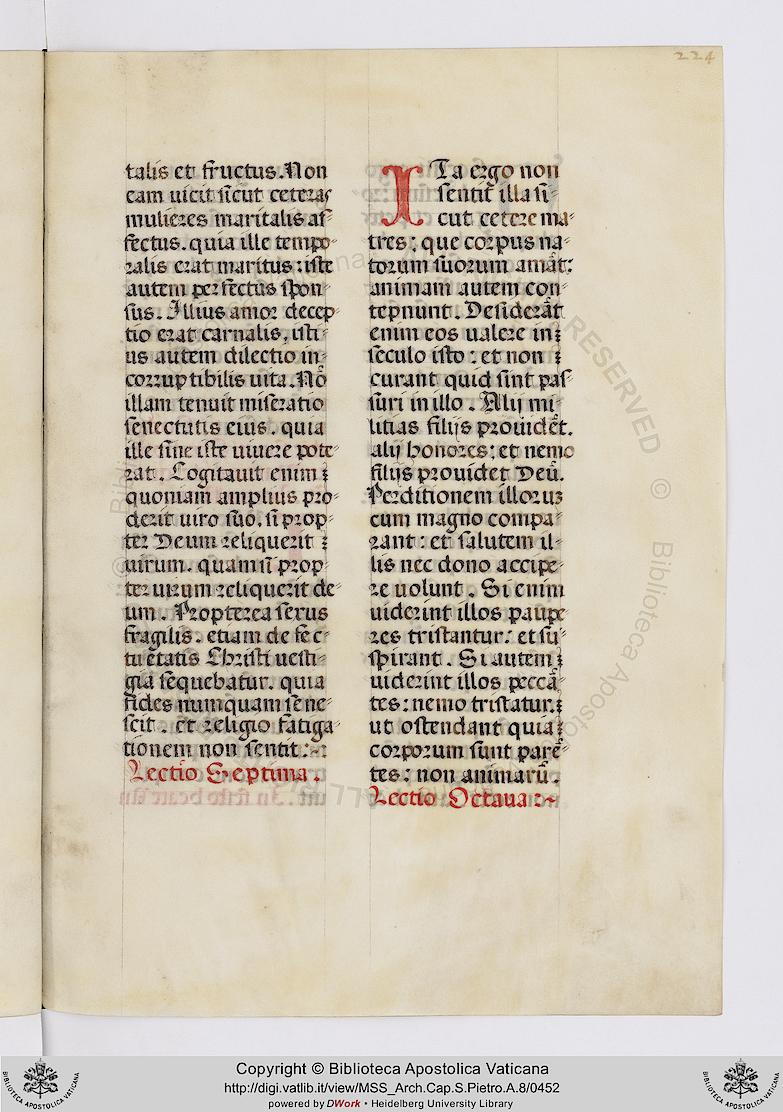 224
talis et fructus. Non
eam uicit sicut ceteras
mulieres maritalis af-
fectus. quia ille tempo-
ralis erat maritus: iste
autem perfectus spon-
sus. Illius amor decep-
tio erat carnalis, isti-
us autem dilectio in-
corruptibilis uita. Nō
illam tenuit miseratio
senectutis eius. quia
ille sine iste uiuere pote-
rat. Cogitauit enim
quoniam amplius pro-
derit uiro suo. si prop-
ter Deum reliquerit
uirum. quam si prop-
ter uirum reliquerit de-
um. Propterea sexus
fragilis. etiam de sec-
tu etatis Christi uesti-
gia sequebatur. quia
fides numquam sene-
scit. et religio fatiga-
tionem non sentit:~
Lectio Septima.
ITa ergo non
sentit illa si-
cut cetere ma-
tres: que corpus na-
torum suorum amāt:
animam autem con-
tepnunt. Desiderāt
enim eos ualere in
seculo isto: et non
curant quid sint pas-
suri in illo. Alij mi-
litias filijs prouidēt.
alij honores: et nemo
filijs prouidet Deū.
Perditionem illoruz
cum magno compa-
rant: et salutem il-
lis nec dono accipe-
re uolunt. Si enim
uiderint illos paupe
res tristantur: et su-
spirant. Si autem
uiderint illos peccā-
tes: nemo tristatur.
ut ostendant quia
corporum sunt parē-
tes: non animarū.
Lectio Octaua:~
RESERVED © Biblioteca Aposto
Copyright © Biblioteca Apostolica Vaticana
http://digi.vatlib.it/view/MSS_Arch.Cap.S.Pietro.A.8/0452
powered by DWork • Heidelberg University Library
BIBLIOTECA APOSTOLICA VATICANA
BIBLIOTECA APOSTOLICA VATICANA